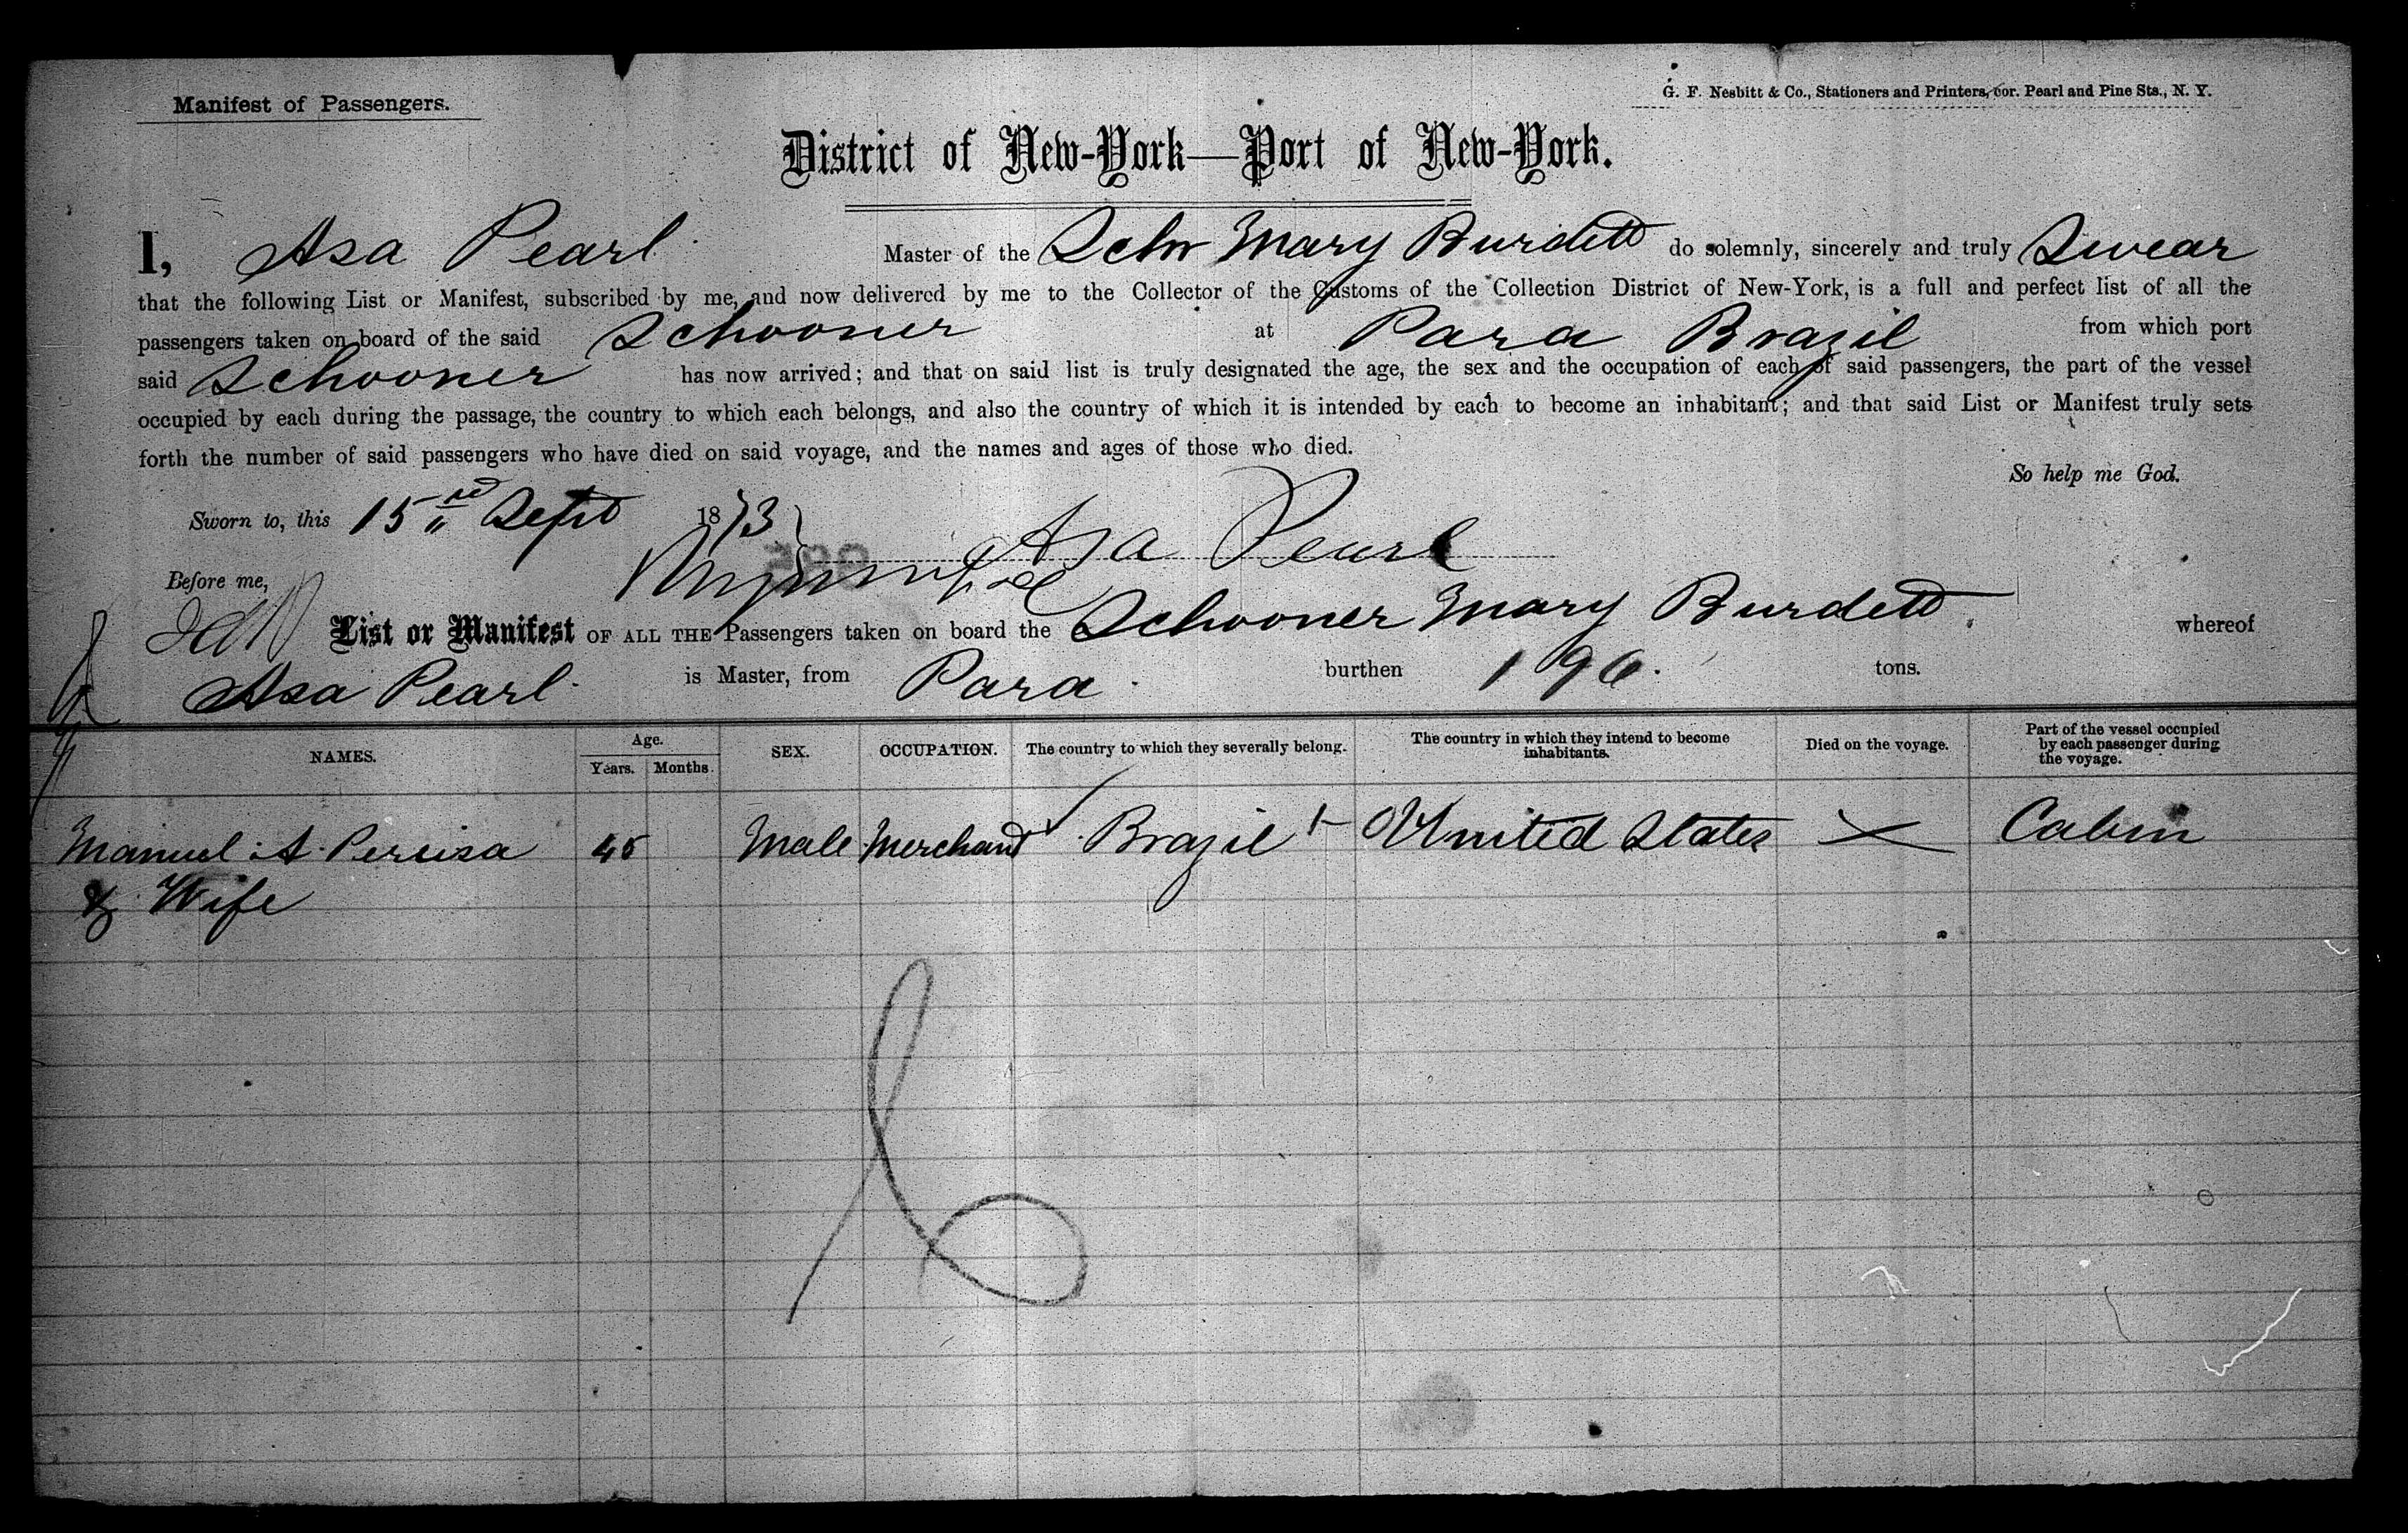 Manifest of Passengers.
G. F. Nesbitt & Co., Stationers and Printers, cor. Pearl and Pine Sts., N. Y.
District of New-York—Port of New-York.
I, Asa Pearl Master of the Schr Mary Burdett do solemnly, sincerely and truly Swear
that the following List or Manifest, subscribed by me, and now delivered by me to the Collector of the Customs of the Collection District of New-York, is a full and perfect list of all the
passengers taken on board of the said Schooner at Para Brazil from which port
said Schooner has now arrived; and that on said list is truly designated the age, the sex and the occupation of each of said passengers, the part of the vessel
occupied by each during the passage, the country to which each belongs, and also the country of which it is intended by each to become an inhabitant; and that said List or Manifest truly sets
forth the number of said passengers who have died on said voyage, and the names and ages of those who died.
So help me God.
Sworn to, this 15 Sept 1873
Asa Pearl
Before me,
List or Manifest OF ALL THE Passengers taken on board the Schooner Mary Burdett. whereof
Asa Pearl is Master, from Para burthen 196. tons.
NAMES. Age. Years. Months. SEX. OCCUPATION. The country to which they severally belong. The country in which they intend to become inhabitants. Died on the voyage. Part of the vessel occupied by each passenger during the voyage.
Manuel A. 45 Male Merchant Brazil United States Cabin
& Wife